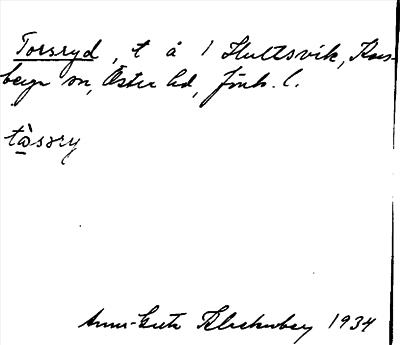 Torsryd, t å 1 Hultsvik, Kors-
berga sn, Östra hd, Jönk. l.
tå̀sry
Anna-Greta Blackenberg 1934